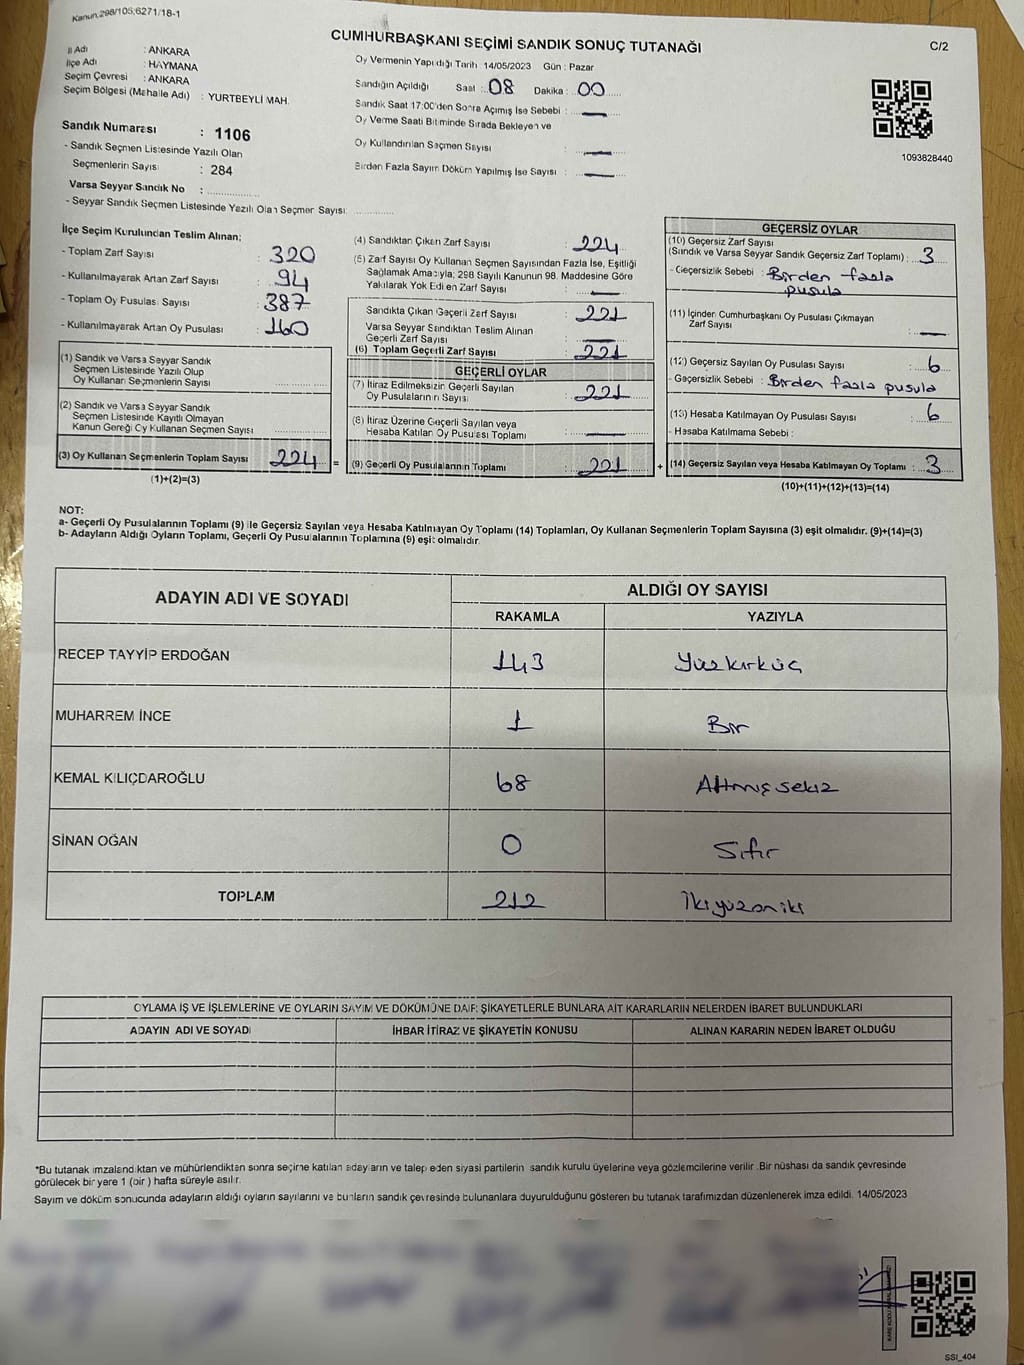 Kanun,298/105;6271/18-1
CUMHURBAŞKANI SEÇİMİ SANDIK SONUÇ TUTANAĞI
C/2
İl Adı : ANKARA
İlçe Adı : HAYMANA
Seçim Çevresi : ANKARA
Seçim Bölgesi (Mahalle Adı) : YURTBEYLİ MAH.
Sandık Numarası : 1106
- Sandık Seçmen Listesinde Yazılı Olan
Seçmenlerin Sayısı : 284
Varsa Seyyar Sandık No :
- Seyyar Sandık Seçmen Listesinde Yazılı Olan Seçmen Sayısı:
Oy Vermenin Yapıldığı Tarih 14/05/2023 Gün : Pazar
Sandığın Açıldığı Saat : 08 Dakika : 00
Sandık Saat 17:00'den Sonra Açımış İse Sebebi : —
Oy Verme Saati Bitiminde Sırada Bekleyen ve
Oy Kullandırılan Seçmen Sayısı : —
Birden Fazla Sayım Döküm Yapılmış İse Sayısı : —
1093828440
İlçe Seçim Kurulundan Teslim Alınan;
- Toplam Zarf Sayısı : 320
- Kullanılmayarak Artan Zarf Sayısı : 94
- Toplam Oy Pusulası Sayısı : 387
- Kullanılmayarak Artan Oy Pusulası : 160
(1) Sandık ve Varsa Seyyar Sandık
Seçmen Listesinde Yazılı Olup
Oy Kullanan Seçmenlerin Sayısı
(2) Sandık ve Varsa Seyyar Sandık
Seçmen Listesinde Kayıtlı Olmayan
Kanun Gereği Oy Kullanan Seçmen Sayısı
(3) Oy Kullanan Seçmenlerin Toplam Sayısı 224 =
(1)+(2)=(3)
(4) Sandıktan Çıkan Zarf Sayısı : 224
(5) Zarf Sayısı Oy Kullanan Seçmen Sayısından Fazla İse, Eşitliği
Sağlamak Amacıyla; 298 Sayılı Kanunun 98. Maddesine Göre
Yakılarak Yok Edilen Zarf Sayısı : —
Sandıkta Çıkan Geçerli Zarf Sayısı : 221
Varsa Seyyar Sandıktan Teslim Alınan
Geçerli Zarf Sayısı : —
(6) Toplam Geçerli Zarf Sayısı : 221
GEÇERLİ OYLAR
(7) İtiraz Edilmeksizin Geçerli Sayılan
Oy Pusulalarının Sayısı : 221
(8) İtiraz Üzerine Geçerli Sayılan veya
Hesaba Katılan Oy Pusulası Toplamı : —
(9) Geçerli Oy Pusulalarının Toplamı : 221 +
GEÇERSİZ OYLAR
(10) Geçersiz Zarf Sayısı
(Sandık ve Varsa Seyyar Sandık Geçersiz Zarf Toplamı) : 3
- Geçersizlik Sebebi : Birden fazla
pusula
(11) İçinden Cumhurbaşkanı Oy Pusulası Çıkmayan
Zarf Sayısı : —
(12) Geçersiz Sayılan Oy Pusulası Sayısı : 6
- Geçersizlik Sebebi : Birden fazla pusula
(13) Hesaba Katılmayan Oy Pusulası Sayısı : 6
- Hesaba Katılmama Sebebi :
(14) Geçersiz Sayılan veya Hesaba Katılmayan Oy Toplamı : 3
(10)+(11)+(12)+(13)=(14)
NOT:
a- Geçerli Oy Pusulalarının Toplamı (9) ile Geçersiz Sayılan veya Hesaba Katılmayan Oy Toplamı (14) Toplamları, Oy Kullanan Seçmenlerin Toplam Sayısına (3) eşit olmalıdır. (9)+(14)=(3)
b- Adayların Aldığı Oyların Toplamı, Geçerli Oy Pusulalarının Toplamına (9) eşit olmalıdır.
ADAYIN ADI VE SOYADI
ALDIĞI OY SAYISI
RAKAMLA YAZIYLA
RECEP TAYYİP ERDOĞAN 143 Yüzkırküç
MUHARREM İNCE 1 Bir
KEMAL KILIÇDAROĞLU 68 Altmışsekiz
SİNAN OĞAN 0 Sıfır
TOPLAM 212 İkiyüzoniki
OYLAMA İŞ VE İŞLEMLERİNE VE OYLARIN SAYIM VE DÖKÜMÜNE DAİR ŞİKAYETLERLE BUNLARA AİT KARARLARIN NELERDEN İBARET BULUNDUKLARI
ADAYIN ADI VE SOYADI İHBAR İTİRAZ VE ŞİKAYETİN KONUSU ALINAN KARARIN NEDEN İBARET OLDUĞU
*Bu tutanak imzalandıktan ve mühürlendikten sonra seçime katılan adayların ve talep eden siyasi partilerin sandık kurulu üyelerine veya gözlemcilerine verilir .Bir nüshası da sandık çevresinde
görülecek bir yere 1 (bir ) hafta süreyle asılır.
Sayım ve döküm sonucunda adayların aldığı oyların sayılarını ve bunların sandık çevresinde bulunanlara duyurulduğunu gösteren bu tutanak tarafımızdan düzenlenerek imza edildi. 14/05/2023
SSI_404